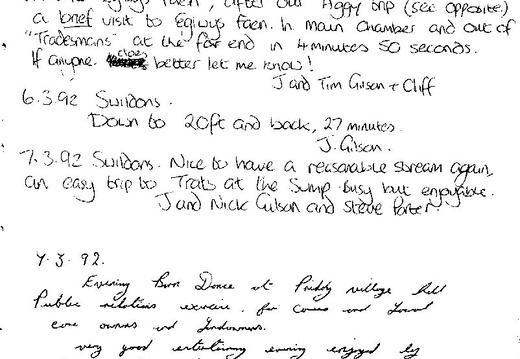 after our Aggy trip (see opposite)
a brief visit to Eglwys Faen. In main chamber and out of
"Tradesmans" at the far end in 4 minutes 50 seconds.
If anyone does better let me know!
J and Tim Gilson + Cliff
6.3.92 Swildons.
Down to 20ft and back, 27 minutes.
J. Gilson.
7.3.92 Swildons. Nice to have a reasonable stream again,
an easy trip to Trats at the Sump. Busy but enjoyable.
J and Nick Gilson and Steve Porter.
7.3.92.
Evening Barn Dance at Priddy village hall
Public relations exercise. for and Local
cave owners and Landowners.
very good entertaining evening enjoyed by